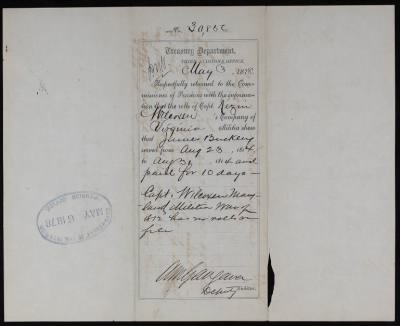 Treasury Department,
THIRD AUDITOR'S OFFICE,
May 3, 1878.
Respectfully returned to the Com-
missioner of Pensions with the informa-
tion that the rolls of Capt. Rezin
Wilcoxen 's Company of
Virginia Militia show
that James
served from Aug 23, 1814,
to Aug 31 1814 and
paid for 10 days—
Capt. Wilcoxen Mary-
land Militia War of
1812 has no rolls on
file
Deputy Auditor.
PENSION OFFICE
MAY 6 1878